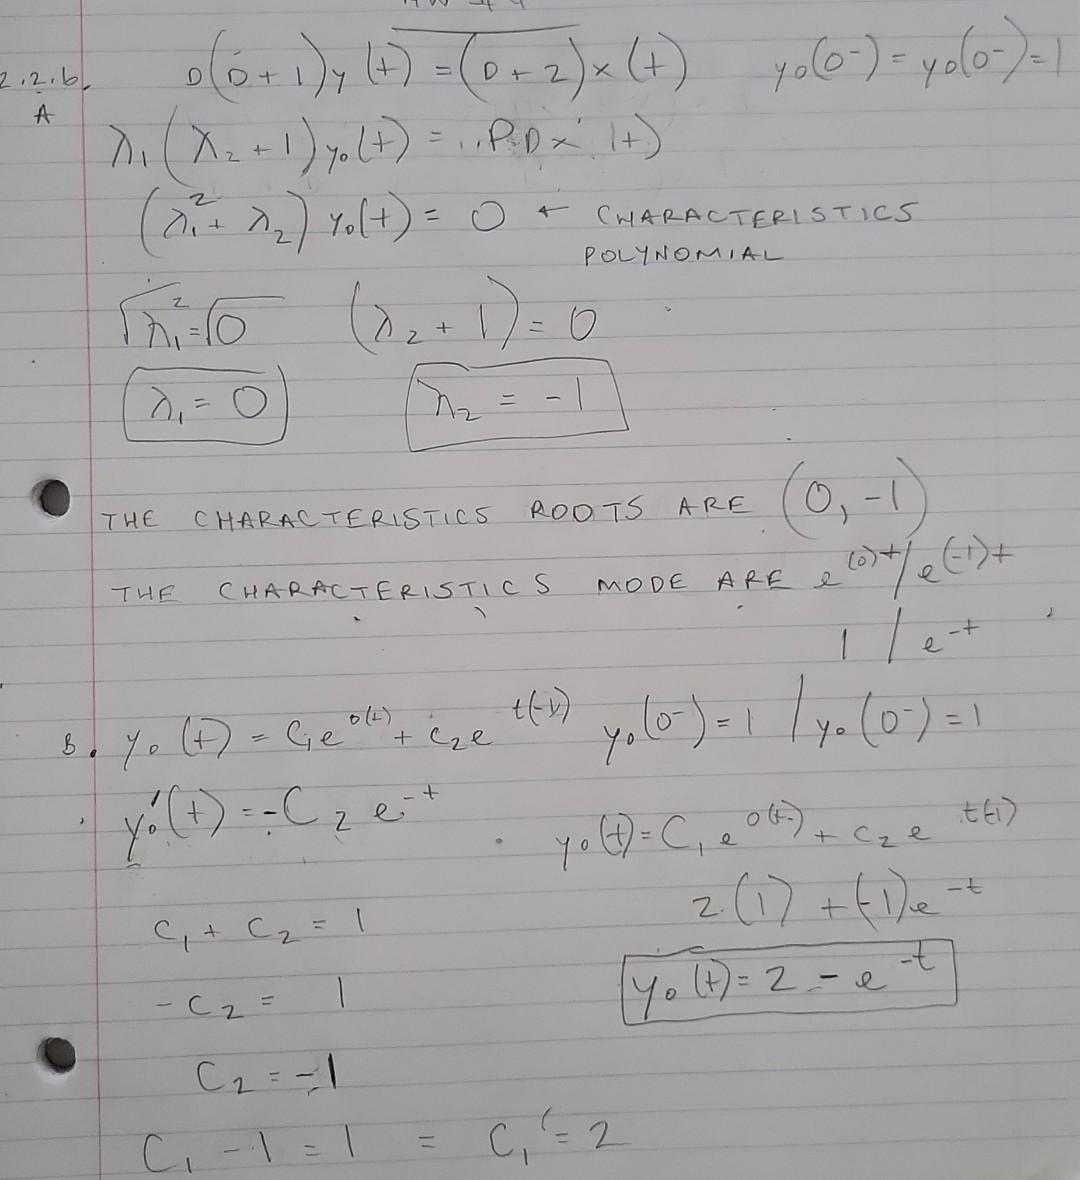 2.2.6. D(D+1)y(t) = (D+2)x(t) y₀(0⁻) = y₀(0⁻) = 1
A
λ₁(λ₂+1)y₀(t) = P D x (t)
(λ₁² + λ₂) y₀(t) = 0 ← CHARACTERISTICS
POLYNOMIAL
√λ₁² = √0 (λ₂ + 1) = 0
λ₁ = 0 λ₂ = -1
THE CHARACTERISTICS ROOTS ARE (0, -1)
THE CHARACTERISTICS MODE ARE e^(0)t / e^(-1)t
1 / e^-t
B. y₀(t) = C₁e^0(t) + C₂e^t(-1) y₀(0⁻) = 1 / y₀(0⁻) = 1
y₀'(t) = -C₂ e^-t
y₀(t) = C₁e^0(t) + C₂e^t(-1)
C₁ + C₂ = 1
2.(1) + (-1)e^-t
-C₂ = 1
y₀(t) = 2 - e^-t
C₂ = -1
C₁ - 1 = 1 = C₁ = 2